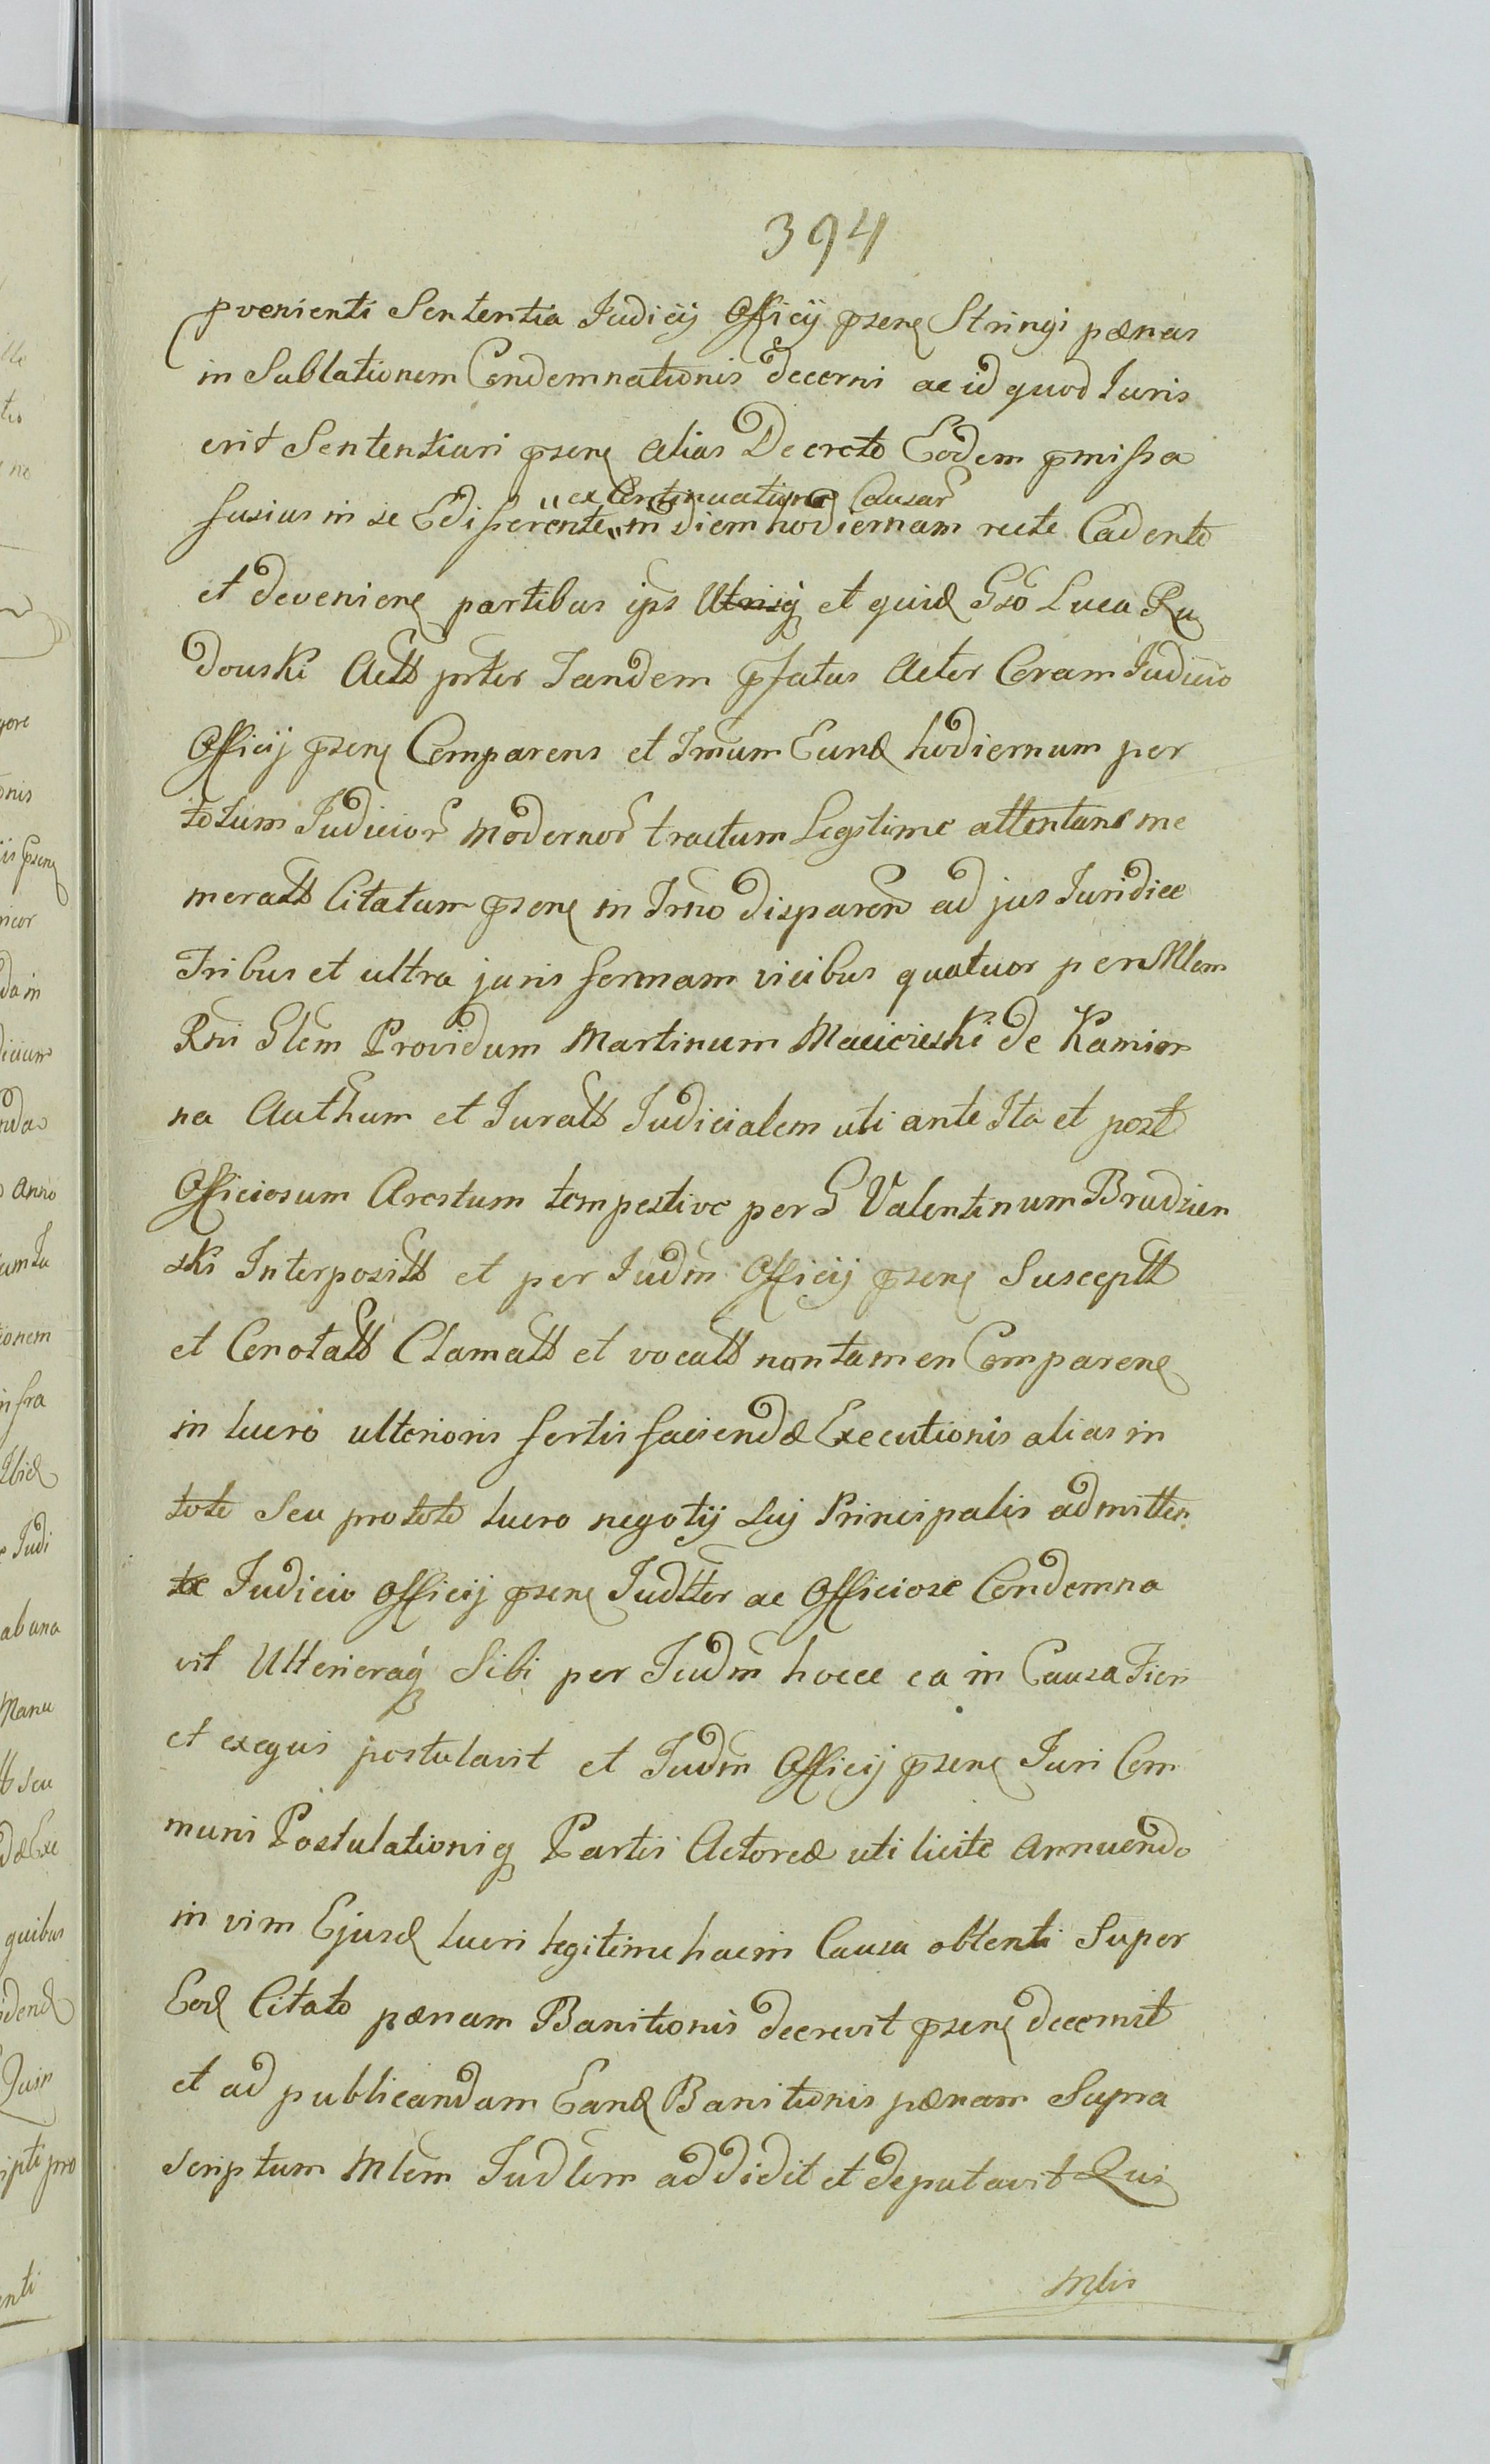 394
pvenienti Sententia Judicij Officij psens Stringi pænas
in Sublationem Condemnationis decerni ac id quod Juris
erit Sententiari psens alias Decreto Eodem pmissa
ex Continuatione Causar
fusius in se Edisserente in diem hodiernam recte Cadente
et deveniens partibus ips Utrisq et quid Gso Luca Ru
douski Actt pnter Tandem pfatus Actor Coram Judicio
Officij psens Comparens et Trnum Eund hodiernum per
totum Judicior modernor tractum Legitime attentans me
moratt Citatum psens in Trno disparen ad jus Juridice
Tribus et ultra juris formam vicibus quatuor per Mlem
Rni Glem Providum Martinum Macieieski de Kamion
na Authum et Juratt Judicialem uti ante Ita et post
Officiosum Arestum tempestive per G Valentinum Brudzien
ski Interpositt et per Judm Officij psens Susceptt
et Conotatt Clamatt et vocatt non tamen Comparens
in lucro ulterioris fortis faciendæ Executionis alias in
toto Seu pro toto lucro negotij sui Principalis admitten
te Judicio Officij psens Judtter ac Officiose Condemna
vit Ulterioraq Sibi per Judm hocce ea in Causa Fieri
et exequi postulavit et Judm Officij psens Juri Com
muni Postulationiq Partis Actoreæ uti licite Annuendo
in vim Ejusd lucri legitime hacin Causa obtenti Super
Eod Citato pænam Banitionis decrevit psens decernit
et ad publicandam Eand Banitionis pænam Supra
scriptum Mlem Judlem addidit et deputavit Qui
Mlis